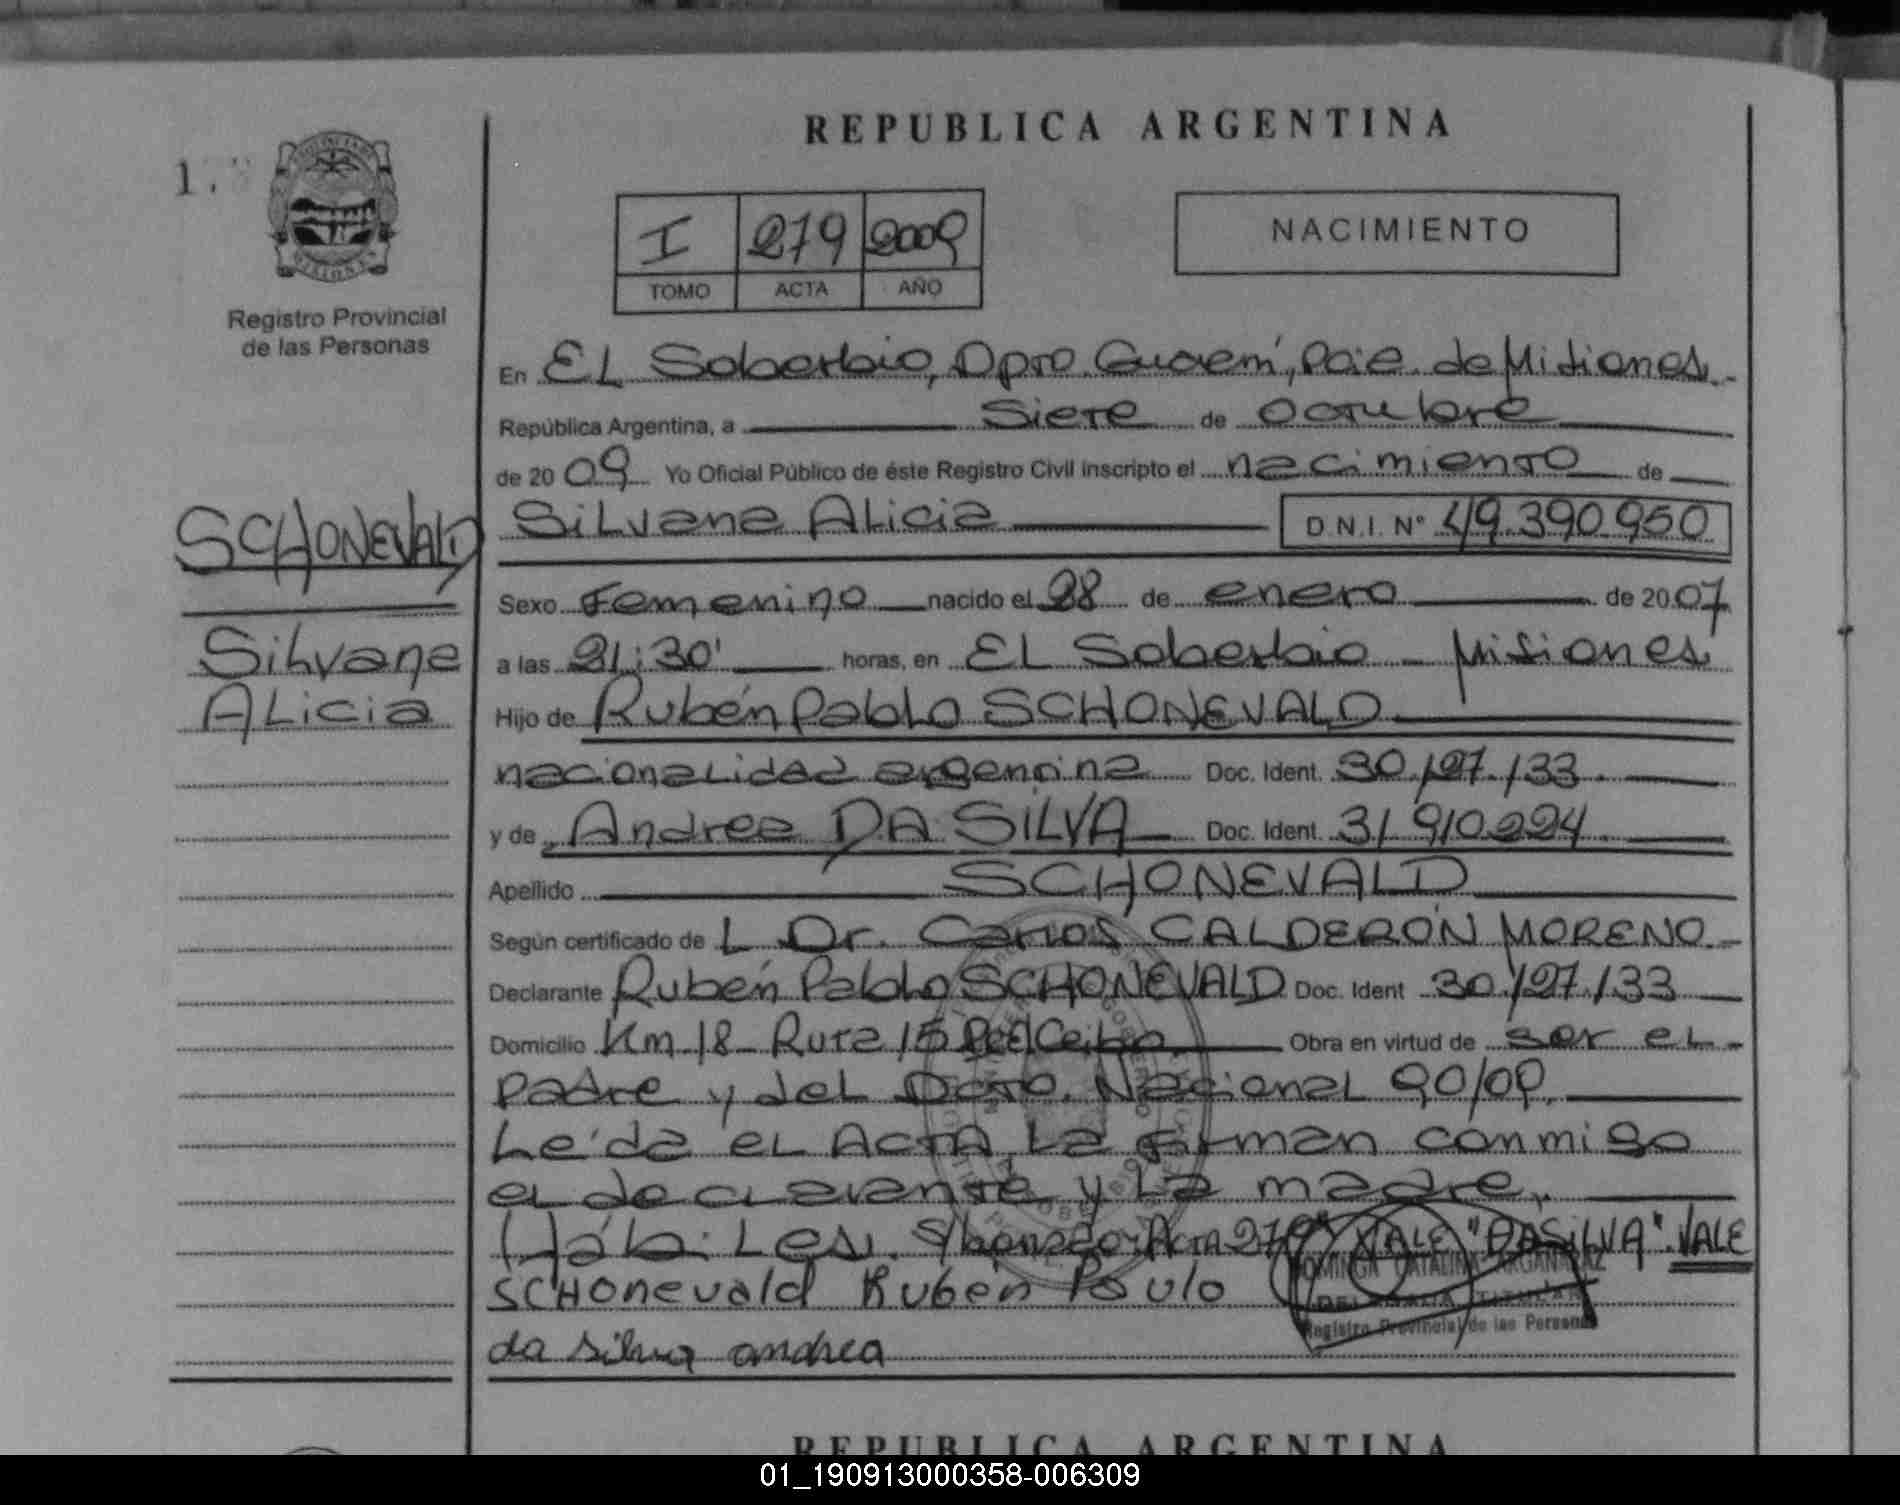 REPUBLICA ARGENTINA
NACIMIENTO
I 279 2009
TOMO ACTA AÑO
Registro Provincial
de las Personas
MISIONES
SCHONEVALD
Silvana
Alicia
En El Soberbio, Dpto. Guaraní, Pcia. de Misiones.
República Argentina, a siete de octubre
de 2009 Yo Oficial Público de éste Registro Civil inscripto el nacimiento de
Silvana Alicia D.N.I. N° 49.390.950
Sexo Femenino nacido el 28 de enero de 2007
a las 21:30' horas, en El Soberbio - Misiones
Hijo de Rubén Pablo SCHONEVALD
nacionalidad argentina Doc. Ident. 30.127.133.
y de Andrea DA SILVA Doc. Ident. 31.910.224.
Apellido SCHONEVALD
Según certificado de L Dr. Carlos CALDERÓN MORENO.
Declarante Rubén Pablo SCHONEVALD Doc. Ident 30.127.133
Domicilio Km 18 - Ruta 15 Ceibo Obra en virtud de ser el
padre y del Dcto. Nacional 90/09.
Leída el ACTA, la firman conmigo
el declarante y la madre.
Háb. Les. S/borrado: Acta 279" VALE "DA SILVA". VALE
SCHonevald Ruben Pavlo
da silva andrea
DOMINGA CATALINA ARGAÑARAZ
DELEGADA TITULAR
Registro Provincial de las Personas
REPUBLICA ARGENTINA
01_190913000358-006309